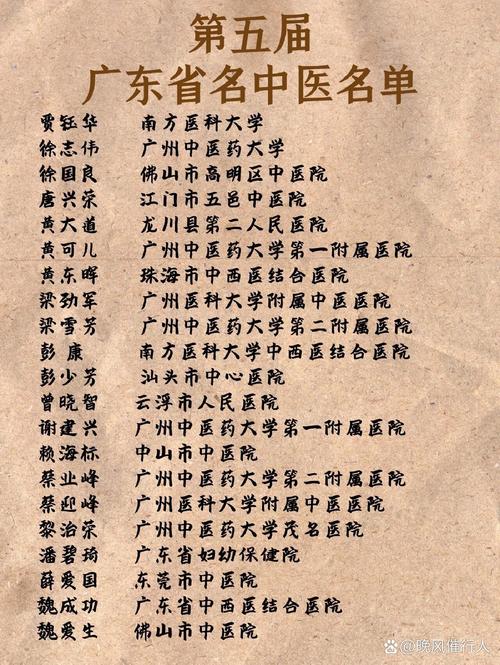 第五届
广东省名中医名单
贾钰华 南方医科大学
徐志伟 广州中医药大学
徐国良 佛山市高明区中医院
唐兴荣 江门市五邑中医院
黄大道 龙川县第二人民医院
黄可儿 广州中医药大学第一附属医院
黄东晖 珠海市中西医结合医院
梁劲军 广州医科大学附属中医医院
梁雪芳 广州中医药大学第二附属医院
彭康 南方医科大学中西医结合医院
彭少芳 汕头市中心医院
曾晓智 云浮市人民医院
谢建兴 广州中医药大学第一附属医院
赖海标 中山市中医院
蔡业峰 广州中医药大学第二附属医院
蔡迎峰 广州医科大学附属中医医院
黎治荣 广州中医药大学茂名医院
潘碧琦 广东省妇幼保健院
薛爱国 东莞市中医院
魏成功 广东省中西医结合医院
魏爱生 佛山市中医院
@晚风催行人